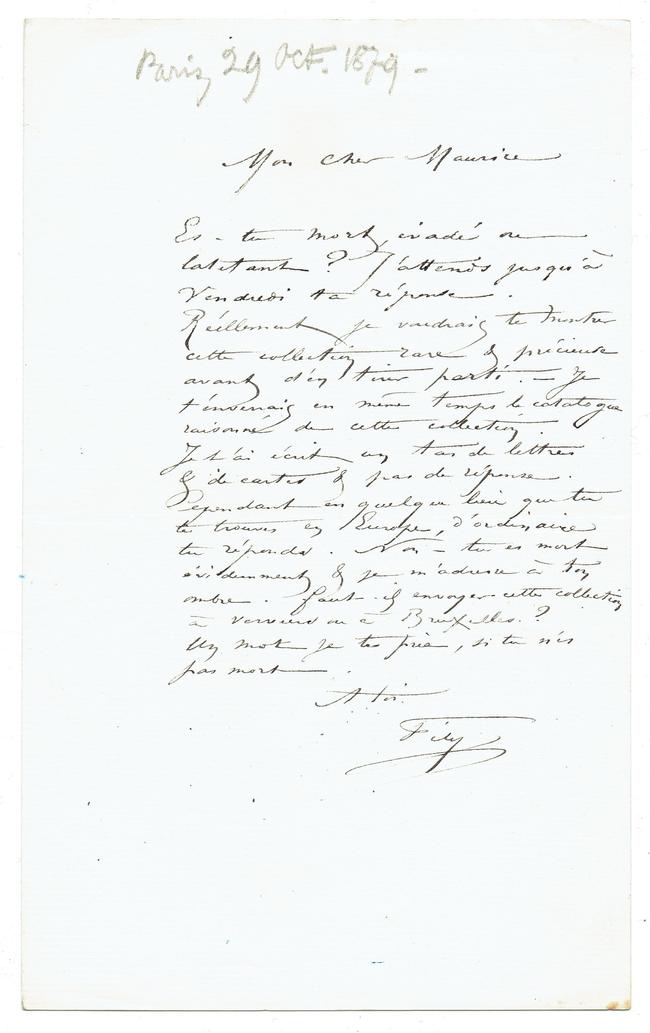 Paris 29 Oct. 1879 -
Mon cher Maurice
Es-tu mort, évadé ou
latitant ? J'attends jusqu'à
Vendredi ta réponse.
Réellement je voudrais te montrer
cette collection rare & précieuse
avant d'en tirer parti. - Je
t'enverrais en même temps le catalogue
raisonné de cette collection.
Je t'ai écrit un tas de lettres
& de cartes & pas de réponse.
Cependant en quelque lieu que tu
te trouves en Europe, d'ordinaire
tu réponds. Non - tu es mort
évidemment & je m'adresse à ton
ombre. faut-il envoyer cette collection
à verviers ou à Bruxelles ?
Un mot je te prie, si tu n'es
pas mort.
A toi
Fély